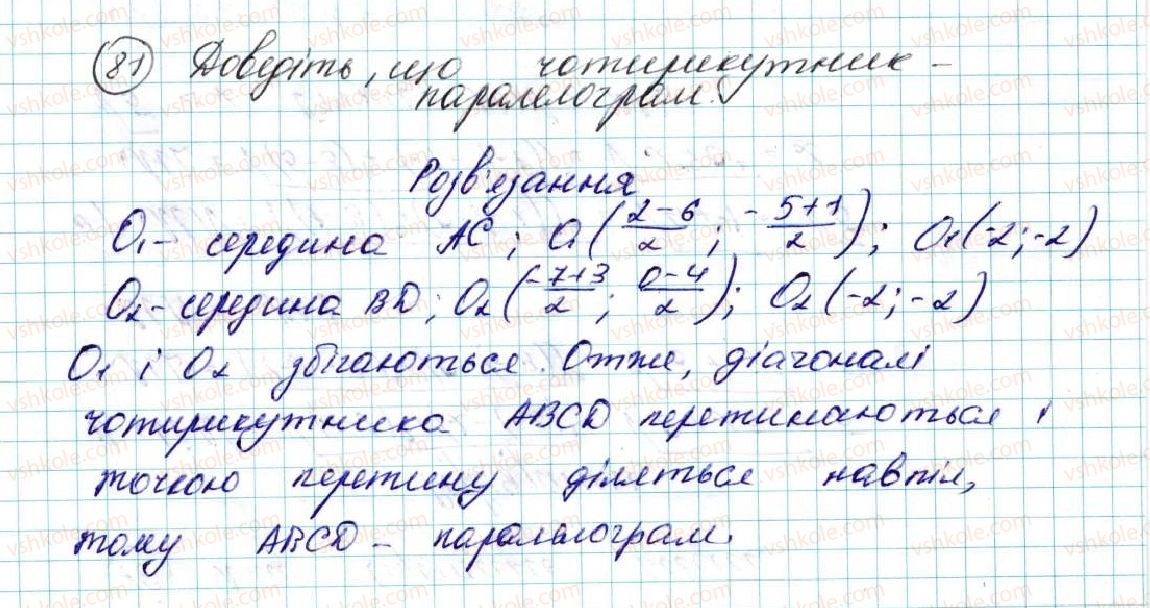 81 Доведіть, що чотирикутник -
паралелограм.
Розв'язання
O₁ - середина AC; O₁ (2-6/2; -5+1/2); O₁(-2;-2)
O₂ - середина BD; O₂ (-7+3/2; 0-4/2); O₂ (-2;-2)
O₁ і O₂ збігаються. Отже, діагоналі
чотирикутника ABCD перетинаються і
точкою перетину діляться навпіл,
тому ABCD - паралелограм.